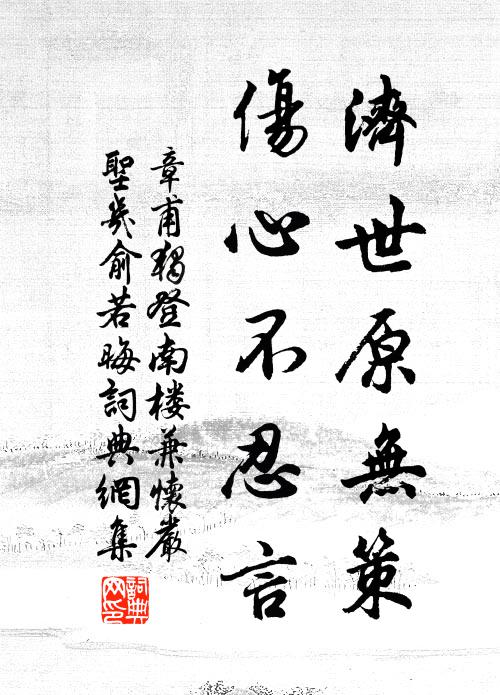 濟世原無策
傷心不忍言
章甫獨登南楼兼懷嚴
聖幾俞若晦詞典網集
詞典